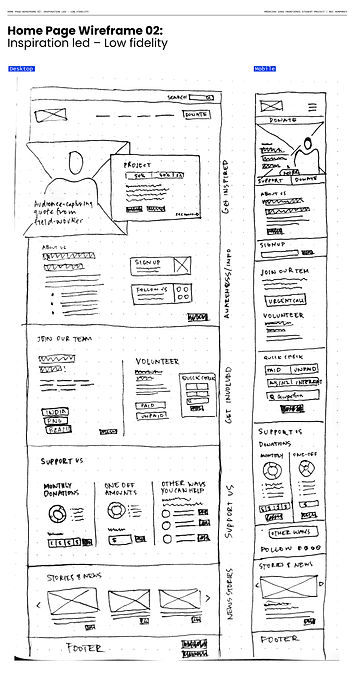 Home Page Wireframe 02:
Inspiration led – Low fidelity
Desktop
Mobile
SEARCH
DONATE
PROJECT
Audience-capturing
quote from
field-worker
GET INSPIRED
ABOUT US
SIGN UP
FOLLOW US
AWARENESS/INFO
JOIN OUR TEAM
VOLUNTEER
QUICK CHECK
INDIA
PNG
BRAZIL
PAID
UNPAID
GET INVOLVED
SUPPORT US
MONTHLY
DONATIONS
ONE OFF
AMOUNTS
OTHER WAYS
YOU CAN HELP
SUPPORT US
STORIES & NEWS
NEWS STORIES
FOOTER
DONATE
SUPPORT
DONATE
ABOUT US
SIGN UP
JOIN OUR TEAM
URGENT CALL
VOLUNTEER
QUICK CHECK
PAID
UNPAID
SUPPORT US
DONATIONS
MONTHLY
ONE-OFF
OTHER WAYS
FOLLOW
STORIES & NEWS
FOOTER